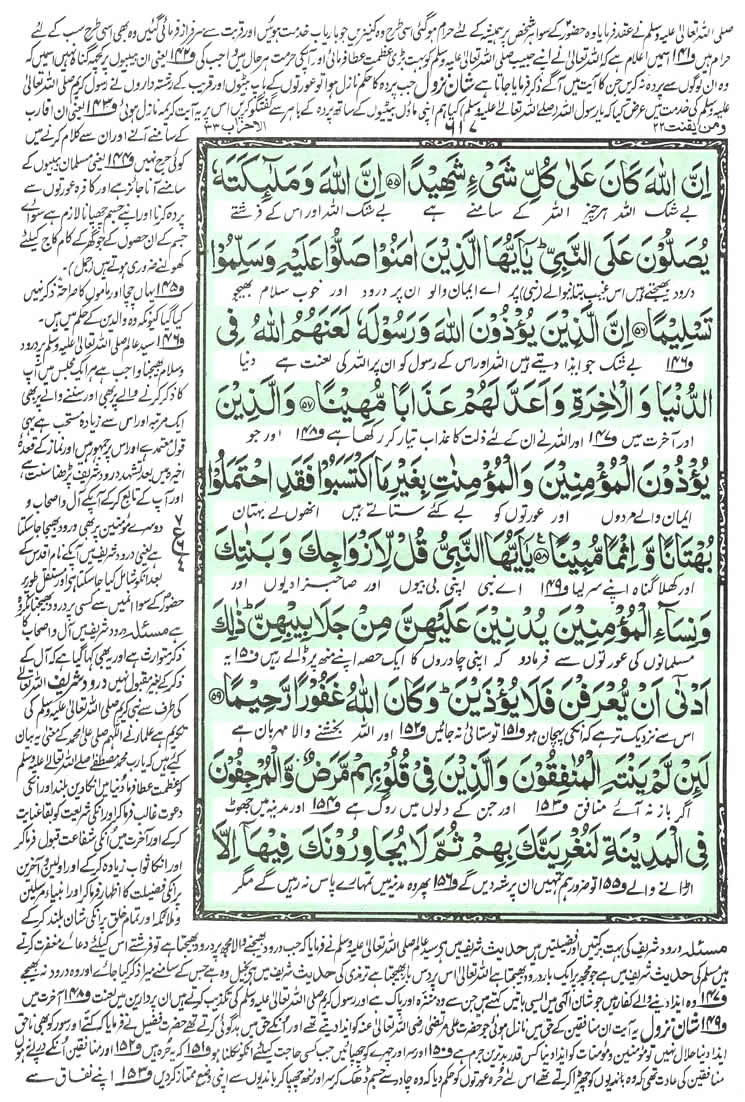 صلی اللہ تعالیٰ علیہ وسلم نے عقد فرمایا وہ حضور کے سوا ہر شخص پر ہمیشہ کے لئے حرام ہوگئی اسی طرح وہ کنیزیں جو باریاب خدمت ہوئیں اور قربت سے سرفراز فرمائی گئیں وہ بھی اسی طرح سب کے لئے
حرام ہیں و۱۴۱ اسمیں اعلام ہے کہ اللہ تعالیٰ نے اپنے حبیب صلی اللہ تعالیٰ علیہ وسلم کو بہت بڑی عظمت عطا فرمائی اور آپکی حرمت ہر حال میں واجب کی و۱۴۲ یعنی ان بیبیوں پر کچھ گناہ نہیں اسمیں کہ
وہ ان لوگوں سے پردہ نہ کریں جن کا آیت میں آگے ذکر فرمایا جاتا ہے شان نزول جب پردہ کا حکم نازل ہوا تو عورتوں کے باپ بیٹوں اور قریب کے رشتہ داروں نے رسول کریم صلی اللہ تعالیٰ
علیہ وسلم کی خدمت میں عرض کیا کہ یا رسول اللہ (صلی اللہ تعالیٰ علیہ وسلم) کیا ہم اپنی ماؤں بیٹیوں کے ساتھ پردہ کے باہر سے گفتگو کریں اس پر یہ آیت کریمہ نازل ہوئی و۱۴۳ یعنی ان اقارب
ومن یقنت ۲۲
۶۱۷
الاحزاب ۳۳
اِنَّ اللّٰهَ كَانَ عَلٰى كُلِّ شَیْءٍ شَهِیْدًا۝۵۵ اِنَّ اللّٰهَ وَ مَلٰٓىٕكَتَهٗ
بے شک اللہ ہر چیز اللہ کے سامنے ہے بے شک اللہ اور اس کے فرشتے
یُصَلُّوْنَ عَلَى النَّبِیِّؕ یٰۤاَیُّهَا الَّذِیْنَ اٰمَنُوْا صَلُّوْا عَلَیْهِ وَ سَلِّمُوْا
درود بھیجتے ہیں اس غیب بتانے والے (نبی) پر اے ایمان والو ان پر درود اور خوب سلام بھیجو
تَسْلِیْمًا۝۵۶ اِنَّ الَّذِیْنَ یُؤْذُوْنَ اللّٰهَ وَ رَسُوْلَهٗ لَعَنَهُمُ اللّٰهُ فِی
و۱۴۶ بے شک جو ایذا دیتے ہیں اللہ اور اس کے رسول کو ان پر اللہ کی لعنت ہے دنیا
الدُّنْیَا وَ الْاٰخِرَةِ وَ اَعَدَّ لَهُمْ عَذَابًا مُّهِیْنًا۝۵۷ وَ الَّذِیْنَ
اور آخرت میں و۱۴۷ اور اللہ نے ان کے لئے ذلت کا عذاب تیار کر رکھا ہے و۱۴۸ اور جو
یُؤْذُوْنَ الْمُؤْمِنِیْنَ وَ الْمُؤْمِنٰتِ بِغَیْرِ مَا اكْتَسَبُوْا فَقَدِ احْتَمَلُوْا
ایمان والے مردوں اور عورتوں کو بے کئے ستاتے ہیں انھوں نے بہتان
بُهْتَانًا وَّ اِثْمًا مُّبِیْنًا۝۵۸ یٰۤاَیُّهَا النَّبِیُّ قُلْ لِّاَزْوَاجِكَ وَ بَنٰتِكَ
اور کھلا گناہ اپنے سر لیا و۱۴۹ اے نبی اپنی بی بیوں اور صاحبزادیوں اور
وَ نِسَآءِ الْمُؤْمِنِیْنَ یُدْنِیْنَ عَلَیْهِنَّ مِنْ جَلَابِیْبِهِنَّؕ ذٰلِكَ
مسلمانوں کی عورتوں سے فرمادو کہ اپنی چادروں کا ایک حصہ اپنے منھ پر ڈالے رہیں و۱۵۰ یہ
اَدْنٰۤى اَنْ یُّعْرَفْنَ فَلَا یُؤْذَیْنَؕ وَ كَانَ اللّٰهُ غَفُوْرًا رَّحِیْمًا۝۵۹
اس سے نزدیک تر ہے کہ انکی پہچان ہو و۱۵۱ تو ستائی نہ جائیں و۱۵۲ اور اللہ بخشنے والا مہربان ہے
لَىِٕنْ لَّمْ یَنْتَهِ الْمُنٰفِقُوْنَ وَ الَّذِیْنَ فِیْ قُلُوْبِهِمْ مَّرَضٌ وَّ الْمُرْجِفُوْنَ
اگر باز نہ آئے منافق و۱۵۳ اور جن کے دلوں میں روگ ہے و۱۵۴ اور مدینہ میں جھوٹ
فِی الْمَدِیْنَةِ لَنُغْرِیَنَّكَ بِهِمْ ثُمَّ لَا یُجَاوِرُوْنَكَ فِیْهَاۤ اِلَّا
اڑانے والے و۱۵۵ تو ضرور ہم تمہیں ان پر شہ دیں گے و۱۵۶ پھر وہ مدینہ میں تمہارے پاس نہ رہیں گے مگر
کے سامنے آنے اور ان سے کلام کرنے میں
کوئی حرج نہیں و۱۴۴ یعنی مسلمان بیبیوں کے
سامنے آنا جائز ہے اور کافرہ عورتوں سے
پردہ کرنا اور اپنے جسم چھپانا لازم ہے سوائے
جسم کے ان حصوں کے جو گھر کے کام کاج کیلئے
کھولنے ضروری ہوتے ہیں (جمل)
و۱۴۵ یہاں چچا اور ماموں کا صراحۃً ذکر نہیں
کیا گیا کیونکہ وہ والدین کے حکم میں ہیں۔
و۱۴۶ سید عالم صلی اللہ تعالیٰ علیہ وسلم پر درود
وسلام بھیجنا واجب ہے ہر ایک مجلس میں آپ
کا ذکر کرنے والے پر بھی اور سننے والے پر بھی
ایک مرتبہ اور اس سے زیادہ مستحب ہے یہی
قول معتمد ہے اور اس پر جمہور ہیں اور نماز کے قعدۂ
اخیرہ میں بعد تشہد درود شریف پڑھنا سنت ہے
اور آپ کے تابع کرکے آپ کے آل و اصحاب و
دوسرے مومنین پر بھی درود بھیجا جاسکتا
ہے یعنی درود شریف میں آپ کے نام اقدس کے
بعد انکو شامل کیا جاسکتا ہے اور مستقل طور پر
حضور کے سوا انمیں سے کسی پر درود بھیجنا مکروہ
ہے مسئلہ درود شریف میں آل و اصحاب کا
ذکر متوارث ہے اور یہ بھی کہا گیا ہے کہ آل کے
ذکر کے بغیر مقبول نہیں درود شریف اللہ تعالیٰ
کی طرف سے نبی کریم صلی اللہ تعالیٰ علیہ وسلم کی
تکریم ہے علماء نے اللھم صل علی محمد کے معنی یہ بیان
کئے ہیں کہ یارب محمد مصطفٰے صلی اللہ تعالیٰ علیہ وسلم
کو عظمت عطا فرما دنیا میں انکا دین بلند اور انکی
دعوت غالب فرما کر اور انکی شریعت کو بقا عنایت
کرکے اور آخرت میں انکی شفاعت قبول فرما کر
اور انکا ثواب زیادہ کرکے اور اولین و آخرین
پر انکی فضیلت کا اظہار فرما کر اور انبیاء مرسلین
و ملائکہ اور تمام خلق پر انکی شان بلند کرکے
مسئلہ درود شریف کی بہت برکتیں اور فضیلتیں ہیں حدیث شریف میں ہے سید عالم صلی اللہ تعالیٰ علیہ وسلم نے فرمایا کہ جب درود بھیجنے والا مجھ پر درود بھیجتا ہے تو فرشتے اس کیلئے دعائے مغفرت کرتے
ہیں مسلم کی حدیث شریف میں ہے جو مجھ پر ایک بار درود بھیجتا ہے اللہ تعالیٰ اس پر دس بار بھیجتا ہے ترمذی کی حدیث شریف میں ہے بخیل وہ ہے جس کے سامنے میرا ذکر کیا جائے اور وہ درود نہ بھیجے
و۱۴۷ وہ ایذا دینے والے کفار ہیں جو شان الٰہی میں ایسی باتیں کہتے ہیں جن سے وہ منزہ اور پاک ہے اور رسول کریم صلی اللہ تعالیٰ علیہ وسلم کی تکذیب کرتے ہیں ان پر دارین میں لعنت و۱۴۸ آخرت میں
و۱۴۹ شان نزول یہ آیت ان منافقین کے حق میں نازل ہوئی جو حضرت علی مرتضٰی رضی اللہ تعالیٰ عنہ کو ایذا دیتے تھے اور انکے حق میں بدگوئی کرتے تھے حضرت فضیل نے فرمایا کہ کتے اور سور کو بھی ناحق
ایذا دینا حلال نہیں تو مومنین و مومنات کو ایذا دینا کس قدر بدترین جرم ہے و۱۵۰ اور سر اور چہرے کو چھپائیں جب کسی حاجت کیلئے انکو نکلنا ہو و۱۵۱ کہ یہ حرہ ہیں و۱۵۲ اور منافقین انکے درپے نہ ہوں
منافقین کی عادت تھی کہ وہ باندیوں کو چھیڑا کرتے تھے اس لئے حرہ عورتوں کو حکم دیا کہ وہ چادر سے جسم ڈھانک کر سر اور منھ چھپا کر باندیوں سے اپنی وضع ممتاز کردیں و۱۵۳ اپنے نفاق سے